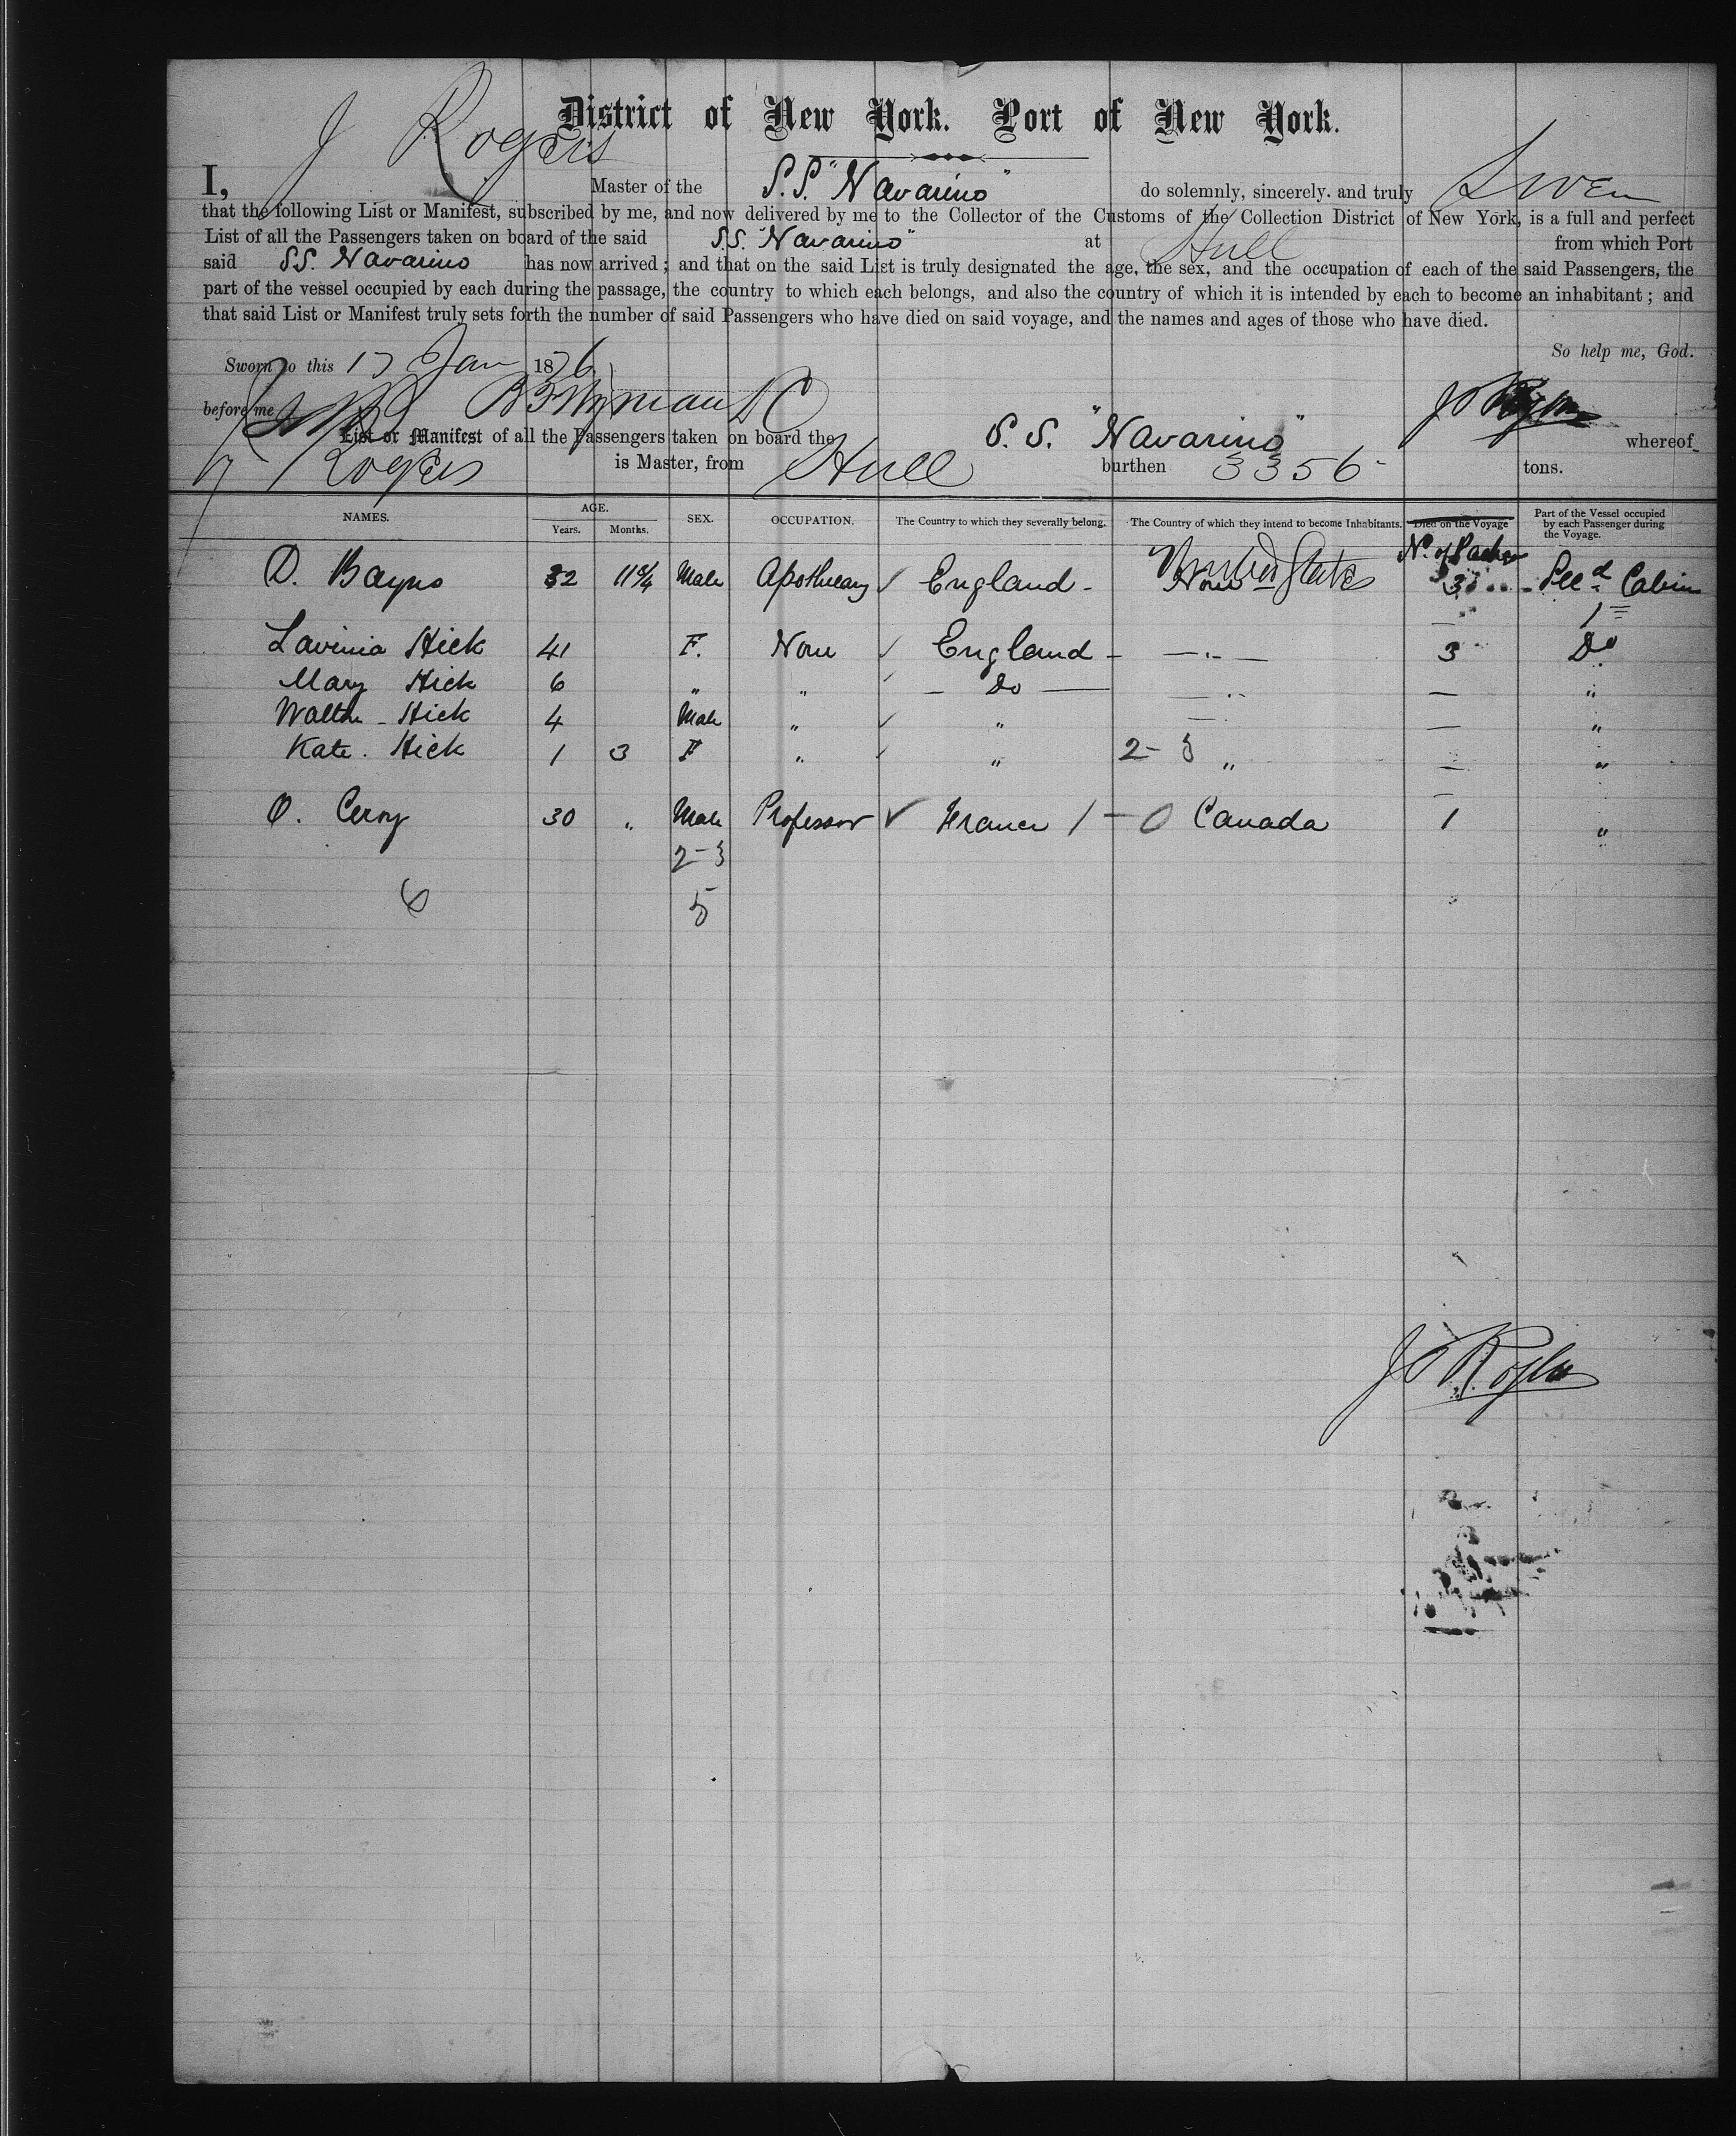 District of New York. Port of New York.
I, J Rogers Master of the S.S. "Navarino" do solemnly, sincerely. and truly Swear
that the following List or Manifest, subscribed by me, and now delivered by me to the Collector of the Customs of the Collection District of New York, is a full and perfect
List of all the Passengers taken on board of the said S.S. "Navarino" at Hull from which Port
said SS. Navarino has now arrived; and that on the said List is truly designated the age, the sex, and the occupation of each of the said Passengers, the
part of the vessel occupied by each during the passage, the country to which each belongs, and also the country of which it is intended by each to become an inhabitant; and
that said List or Manifest truly sets forth the number of said Passengers who have died on said voyage, and the names and ages of those who have died.
So help me, God.
Sworn to this 17 Jan 1876
before me
List or Manifest of all the Passengers taken on board the S. S. "Navarino" whereof
J Rogers is Master, from Hull burthen 3356 tons.
NAMES. AGE. Years. Months. SEX. OCCUPATION. The Country to which they severally belong. The Country of which they intend to become Inhabitants. Died on the Voyage Part of the Vessel occupied by each Passenger during the Voyage.
No. of
D. 32 Male Apothecary ✓ England - United States 3 Secd Cabin
1
Lavinia Hick 41 F. None ✓ England - — " — 3 Do
Mary Hick 6 " " ✓ — Do — — " — "
Walter - Hick 4 Male " ✓ " — " — "
Kate. Hick 1 3 F " ✓ " 2 - 3 " — "
O. Ceroy 30 " Male Professor ✓ France 1 - 0 Canada 1 "
2-3
6 5